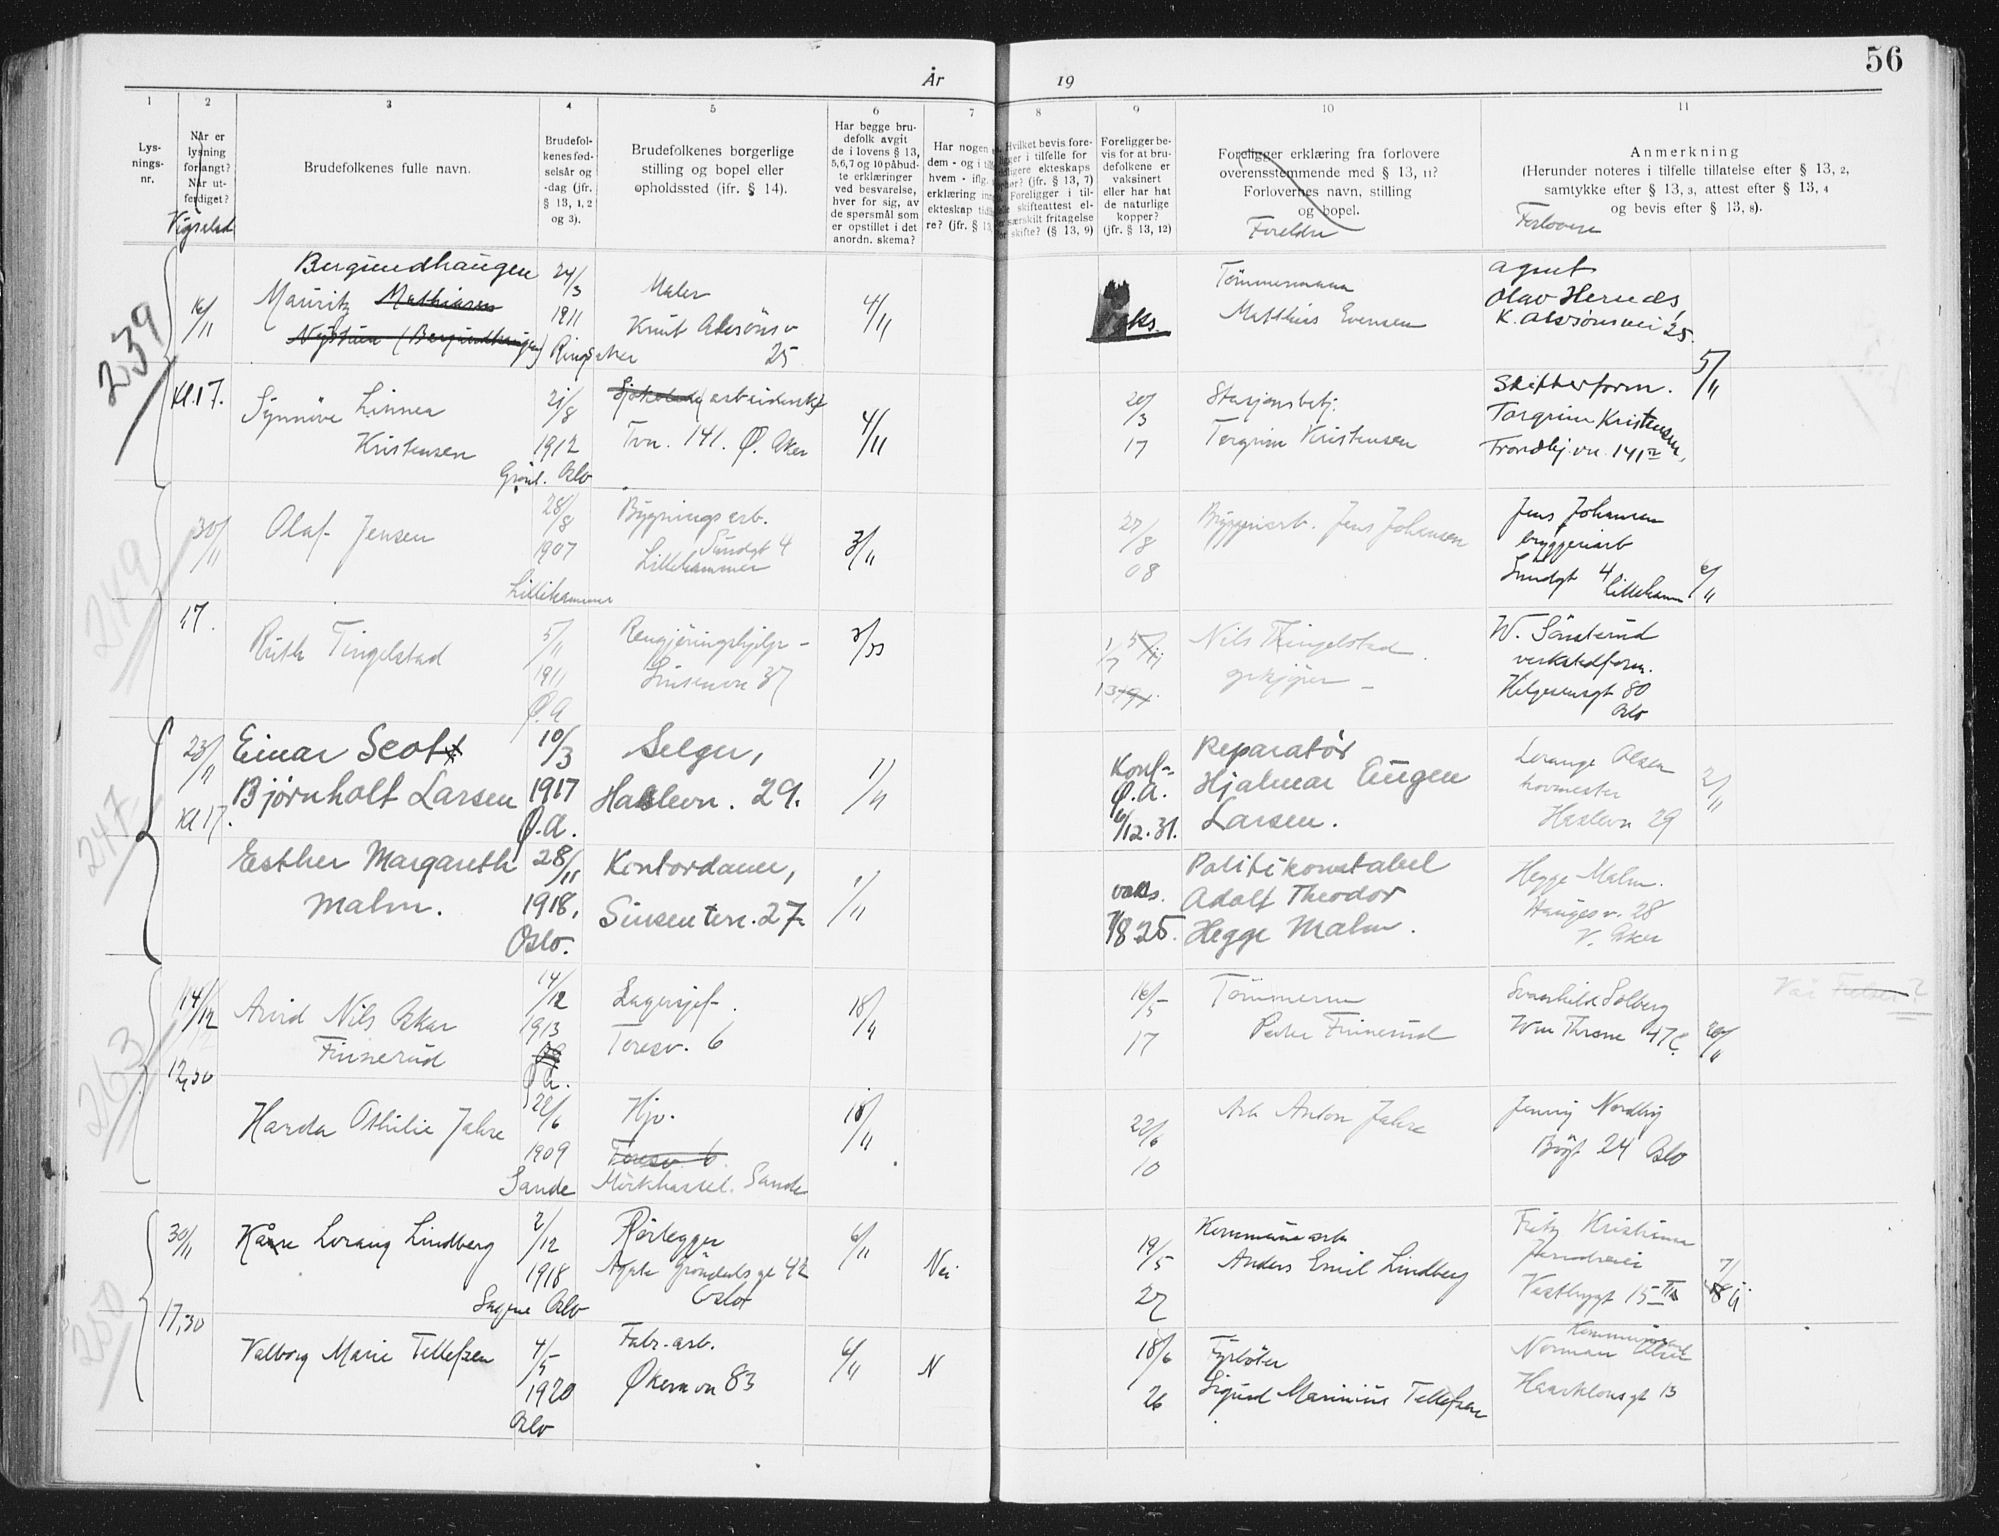 56
År 19
1 2 3 4 5 6 7 8 9 10 11
Lys-
nings-
nr.
Når er
lysning
forlangt?
Når ut-
ferdiget?
Vigselsd
Brudefolkenes fulle navn.
Brudefol-
kenes fød-
selsår og
-dag (jfr.
§ 13, 1, 2
og 3).
Brudefolkenes borgerlige
stilling og bopel eller
opholdssted (jfr. § 14).
Har begge bru-
defolk avgit
de i lovens § 13,
5,6,7 og 10 påbud-
te erklæringer
ved besvarelse,
hver for sig, av
de spørsmål som
er opstillet i det
anordn. skema?
Har nogen
dem - og i
hvem - iflg.
erklæring
ekteskap
re? (jfr. § 13,
Hvilket bevis fore-
i tilfelle for
ekteskaps
(jfr. § 13, 7)
Foreligger i til-
skifteattest el-
særskilt fritagelse
skifte? (§ 13, 9)
Foreligger be-
vis for at bru-
defolkene er
vaksinert
eller har hat
de naturlige
kopper?
(jfr. § 13, 12)
Foreligger erklæring fra forlovere
overensstemmende med § 13, 11?
Forlovernes navn, stilling
og bopel.
Foreldre
Anmerkning
(Herunder noteres i tilfelle tillatelse efter § 13, 2,
samtykke efter § 13, 3, attest efter § 13, 4
og bevis efter § 13, 8).
Forlovere
239
16/11
Kl. 17.
Bergundhaugen
Mauritz Mathiasen
Nystuen (Bergundhaugen)
24/3
1911
Ringsaker
Maler
Knut Alvsøns v.
25
4/11
Tømmermann
Matthis Evensen
agent
Olav Hernes,
K. Alvsønsvei 25.
5/11
Synnøve Linnea
Kristensen
21/8
1912
Grønl. Oslo
arbeiderske
Tvn. 141. Ø. Aker
4/11
20/3
17
Stasjonsbetj.
Torgrim Kristensen
Skifteform.
Torgrim Kristensen
Trondhj.vn. 141
249
30/11
17.
Olaf Jensen
28/8
1907
Lillehammer
Bygningsarb.
Sundgt 4
Lillehammer
3/11
27/8
08
Bryggeriarb. Jens Johansen
Jens Johansen
bryggeriarb
Sundgt 4 Lilleham
6/11
Ruth Tingelstad
5/11
1911
Ø. A
Rengjøringshjelp -
Sinsenvn 37
Nils Thingelstad
W. Sønsterud
verkstedform.
Helgesensgt 80
Oslo
247
23/11
Kl 17.
Einar Scott
Bjørnholt Larsen
10/3
1917
Ø.A.
Selger,
Haslevn. 29.
1/11
Konf.
Ø.A.
6/12.31.
Reparatør
Hjalmar Eugen
Larsen.
Lorange Olsen
hovmester
Haslevn 29
2/11
Esther Margareth
Malm.
28/11
1918.
Oslo.
Kontordame,
Sinsen terr. 27.
1/11
vaks.
7/8 25.
Politikonstabel
Adolf Theodor
Hegge Malm.
Hegge Malm.
Haugesv. 28
V. Aker
263
14/12
12,30
Arvid Nils Oskar
Finnerud
14/12
1913
Ø A.
Lagersjef.
Toresv. 6
18/11
16/5
17
Tømmerm
Peder Finnerud
Svanhild Solberg
Wm Thrane 47 C.
20/11
Harda Othilie Jahre
22/6
1909
Sande
Hjv.
Toresv. 6
Mørkhassel. Sande
18/11
22/6
10
Arb Anton Jahre
Jenny Nordby
Bøgt 24 Oslo
250
30/11
17,30
Kåre Lorang Lindberg
2/12
1918
Sagene Oslo
Rørlegger
Agate Grøndals gt 42
Oslo
6/11
Nei
19/5
27
Kommunearb
Anders Emil Lindberg
Fritz Kristiansen
Vestbygt 15
Valborg Marie Tellefsen
4/5
1920
Oslo
Fabr. arb.
Økernvn 83
6/11
N
18/6
26
Fyrbøter
Sigurd Marinius Tellefsen
Norman Olsen
Haarklousgt 13